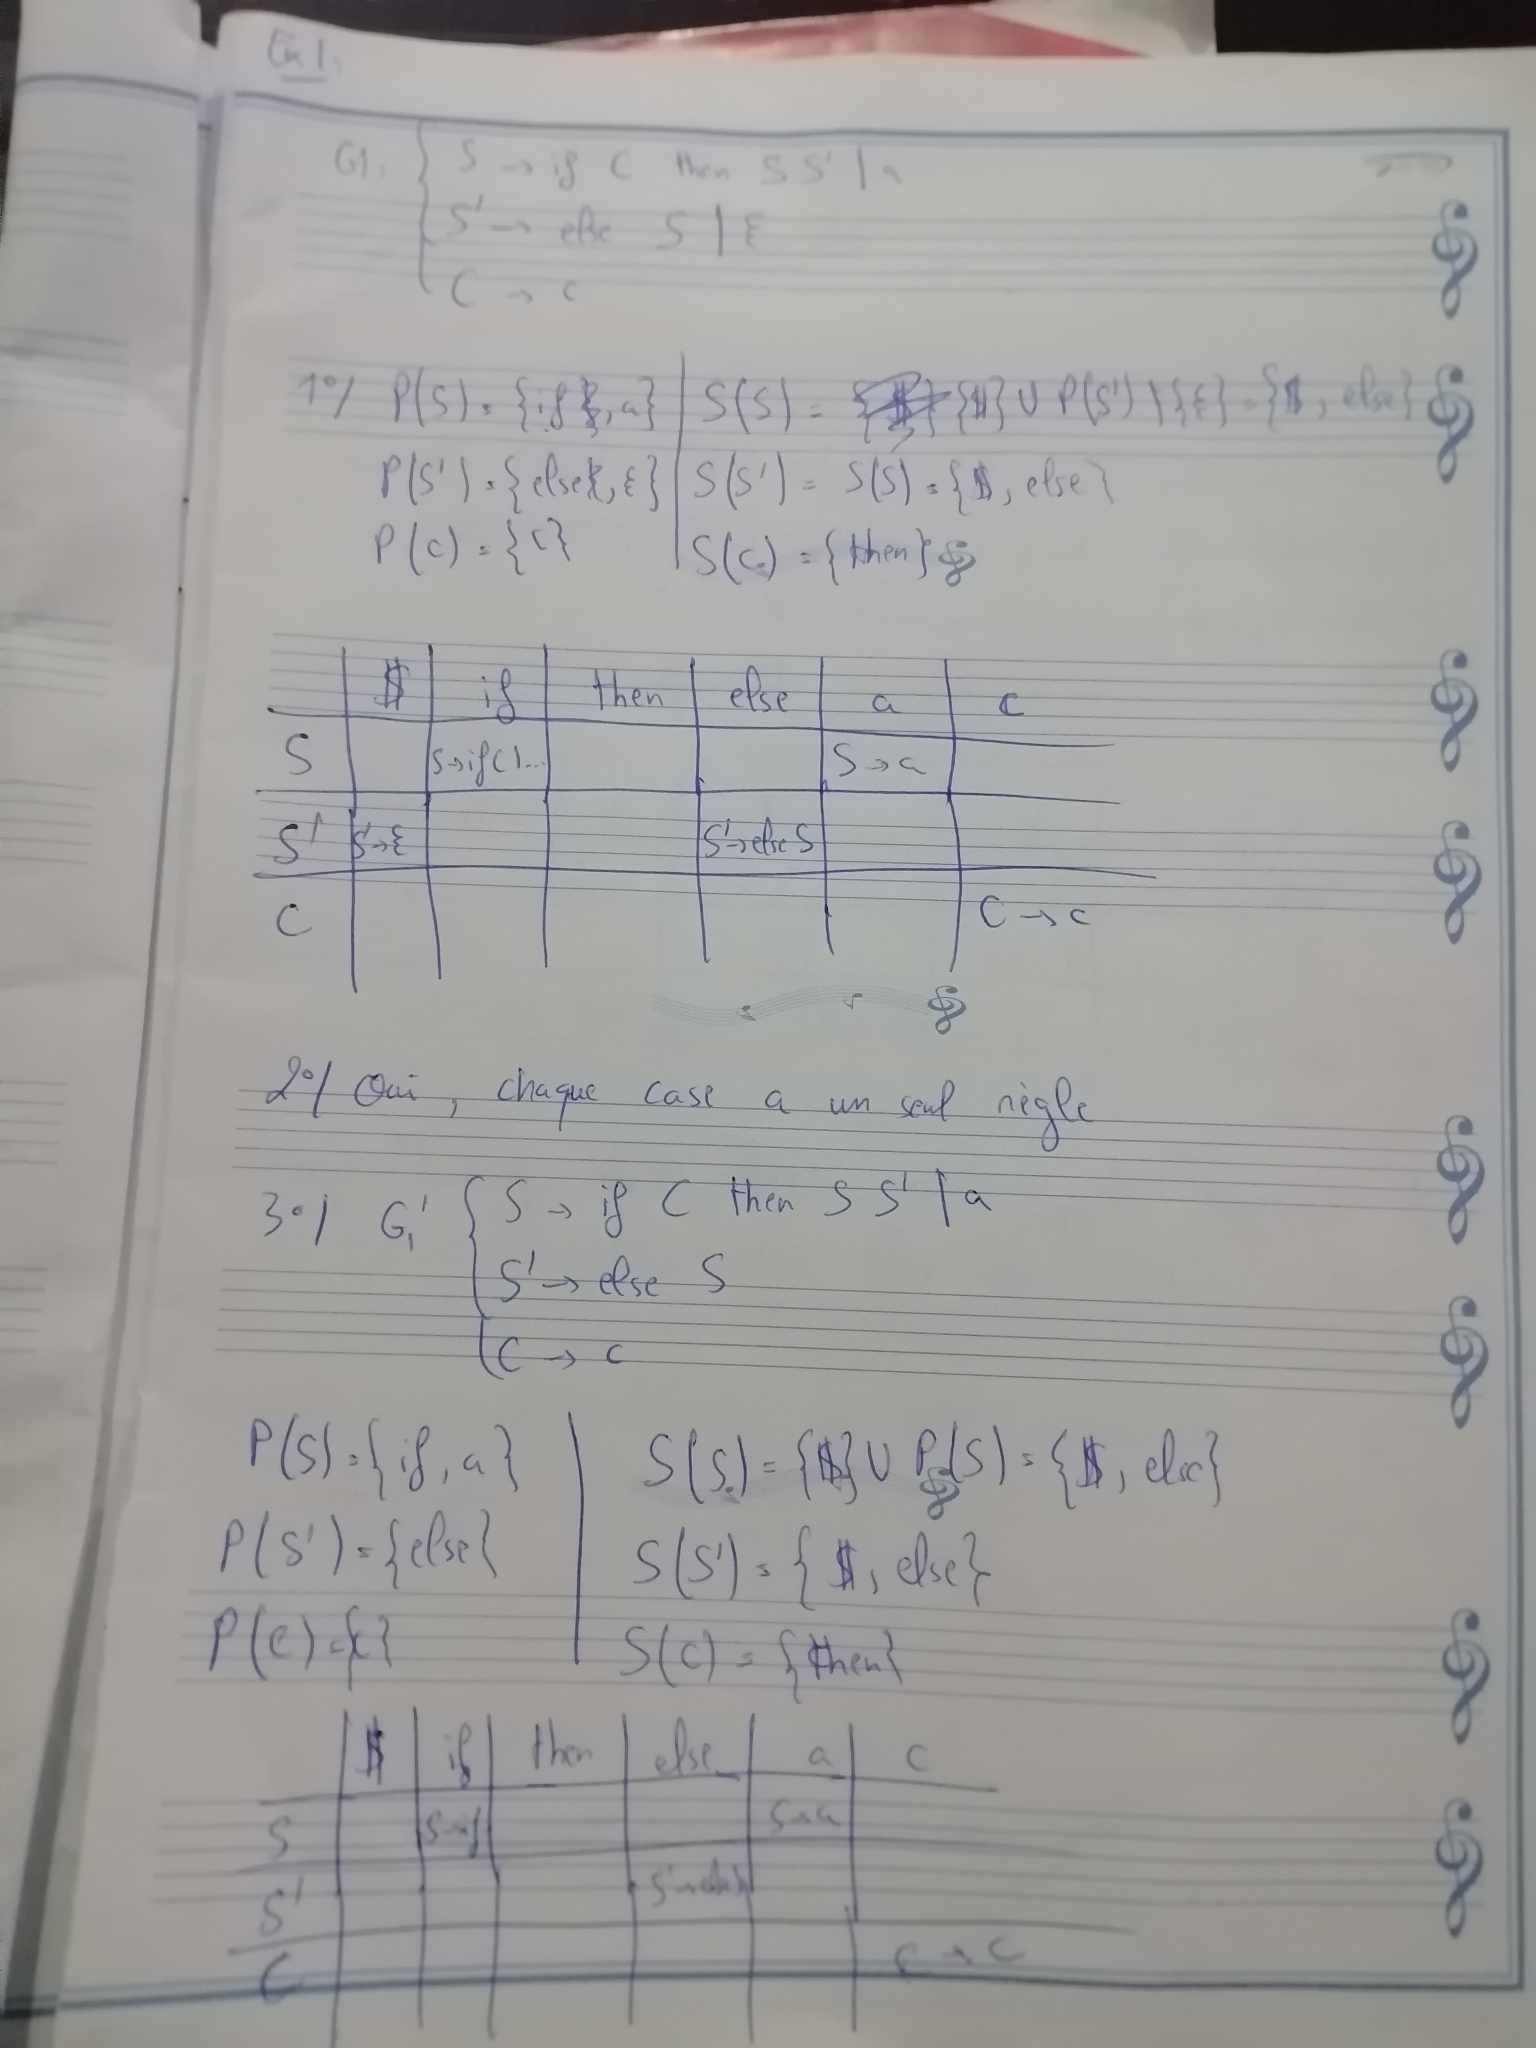 Ex 1:
G1: { S → if C then S S' | a
S' → else S | ε
C → c
1°/ P(S) = {if, a} | S(S) = {$} U P(S') \ {ε} = {$, else}
P(S') = {else, ε} | S(S') = S(S) = {$, else}
P(C) = {c} | S(C) = {then}
$ | if | then | else | a | c
S | S→if C ... | S → a
S' | S'→ε | S'→else S
C | C → c
2°/ Oui, chaque case a un seul règle
3°/ G1' { S → if C then S S' | a
S' → else S
C → c
P(S) = {if, a} | S(S) = {$} U P(S) = {$, else}
P(S') = {else} | S(S') = {$, else}
P(C) = {c} | S(C) = {then}
$ | if | then | else | a | c
S | S→if | S→a
S' | S'→else S
C | C → c